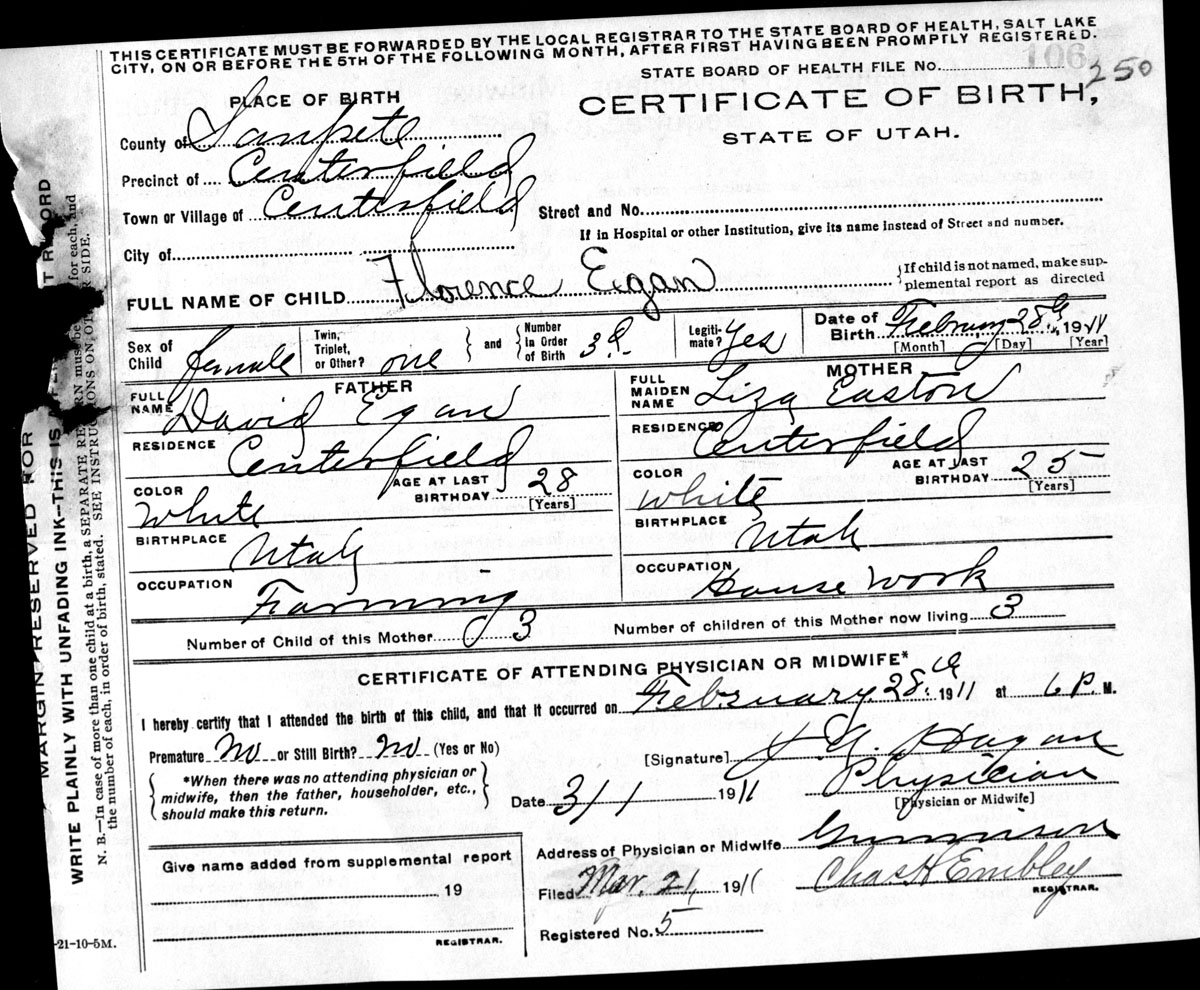 THIS CERTIFICATE MUST BE FORWARDED BY THE LOCAL REGISTRAR TO THE STATE BOARD OF HEALTH, SALT LAKE
CITY, ON OR BEFORE THE 5TH OF THE FOLLOWING MONTH, AFTER FIRST HAVING BEEN PROMPTLY REGISTERED.
106
STATE BOARD OF HEALTH FILE No. 250
PLACE OF BIRTH
CERTIFICATE OF BIRTH,
STATE OF UTAH.
County of Sanpete
Precinct of Centerfield
Town or Village of Centerfield Street and No.
If in Hospital or other Institution, give its name instead of Street and number.
City of
FULL NAME OF CHILD Florence Egan {If child is not named, make sup-
plemental report as directed
Sex of Child female Twin, Triplet, or Other? one and Number in Order of Birth 3d Legiti-mate? Yes Date of Birth February 28th, 1911
[Month] [Day] [Year]
FATHER MOTHER
FULL NAME David Egan FULL MAIDEN NAME Liza Easton
RESIDENCE Centerfield RESIDENCE Centerfield
COLOR White AGE AT LAST BIRTHDAY 28 [Years] COLOR White AGE AT LAST BIRTHDAY 25 [Years]
BIRTHPLACE Utah BIRTHPLACE Utah
OCCUPATION Farming OCCUPATION House Work
Number of Child of this Mother 3 Number of children of this Mother now living 3
CERTIFICATE OF ATTENDING PHYSICIAN OR MIDWIFE*
I hereby certify that I attended the birth of this child, and that it occurred on February 28th 1911 at 6 P. M.
Premature No or Still Birth? No (Yes or No)
[Signature] Hagan
*When there was no attending physician or
midwife, then the father, householder, etc.,
should make this return.
Physician
[Physician or Midwife]
Date 3/1 1911
Address of Physician or Midwife Gunnison
Give name added from supplemental report
19
REGISTRAR.
Filed Mar. 21, 1911 Chas H Embley
REGISTRAR.
Registered No. 5
-21-10-5M.
MARGIN RESERVED FOR
WRITE PLAINLY WITH UNFADING INK--THIS IS RECORD
N. B.—In case of more than one child at a birth, a SEPARATE must be for each, and
the number of each, in order of birth, stated. SEE INSTRUCTIONS ON SIDE.